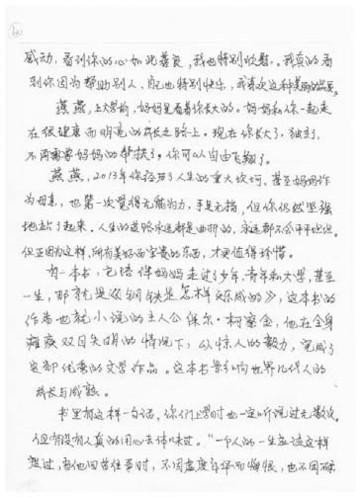 感动，看到你的心如此善良，我也特别欣慰。我真的看
到你因为帮助别人，自己也特别快乐，我喜欢这种美丽的
燕燕，上大学前，妈妈是看着你长大的。妈妈和你一起走
在很健康而明亮的成长之路上。现在你长大了，独立了，
不再需要妈妈的搀扶了，你可以自由飞翔了。
燕燕，2013年你经历了人生的重大坎坷，甚至妈妈作
为母亲，也第一次觉得无能为力，手足无措，但你仍然坚强
地站了起来。人生的道路永远都是曲折的，永远都不会平平坦坦。
但正因为这样，所有美好而宝贵的东西，才更值得珍惜。
有一本书，它陪伴妈妈走过了少年、青年和大学，甚至
一生，那就是《钢铁是怎样炼成的》，这本书的
作者也就小说的主人公保尔·柯察金，他在全身
瘫痪双目失明的情况下，以惊人的毅力，完成了
这部优秀的文学作品。这本书影响世界几代人的
成长与成熟。
书里有这样一句话，你们上学时也一定听说过无数次，
但有没有人真的用心去体味过。“一个人的一生应该这样
度过，当他回首往事时，不因虚度年华而悔恨，也不因碌